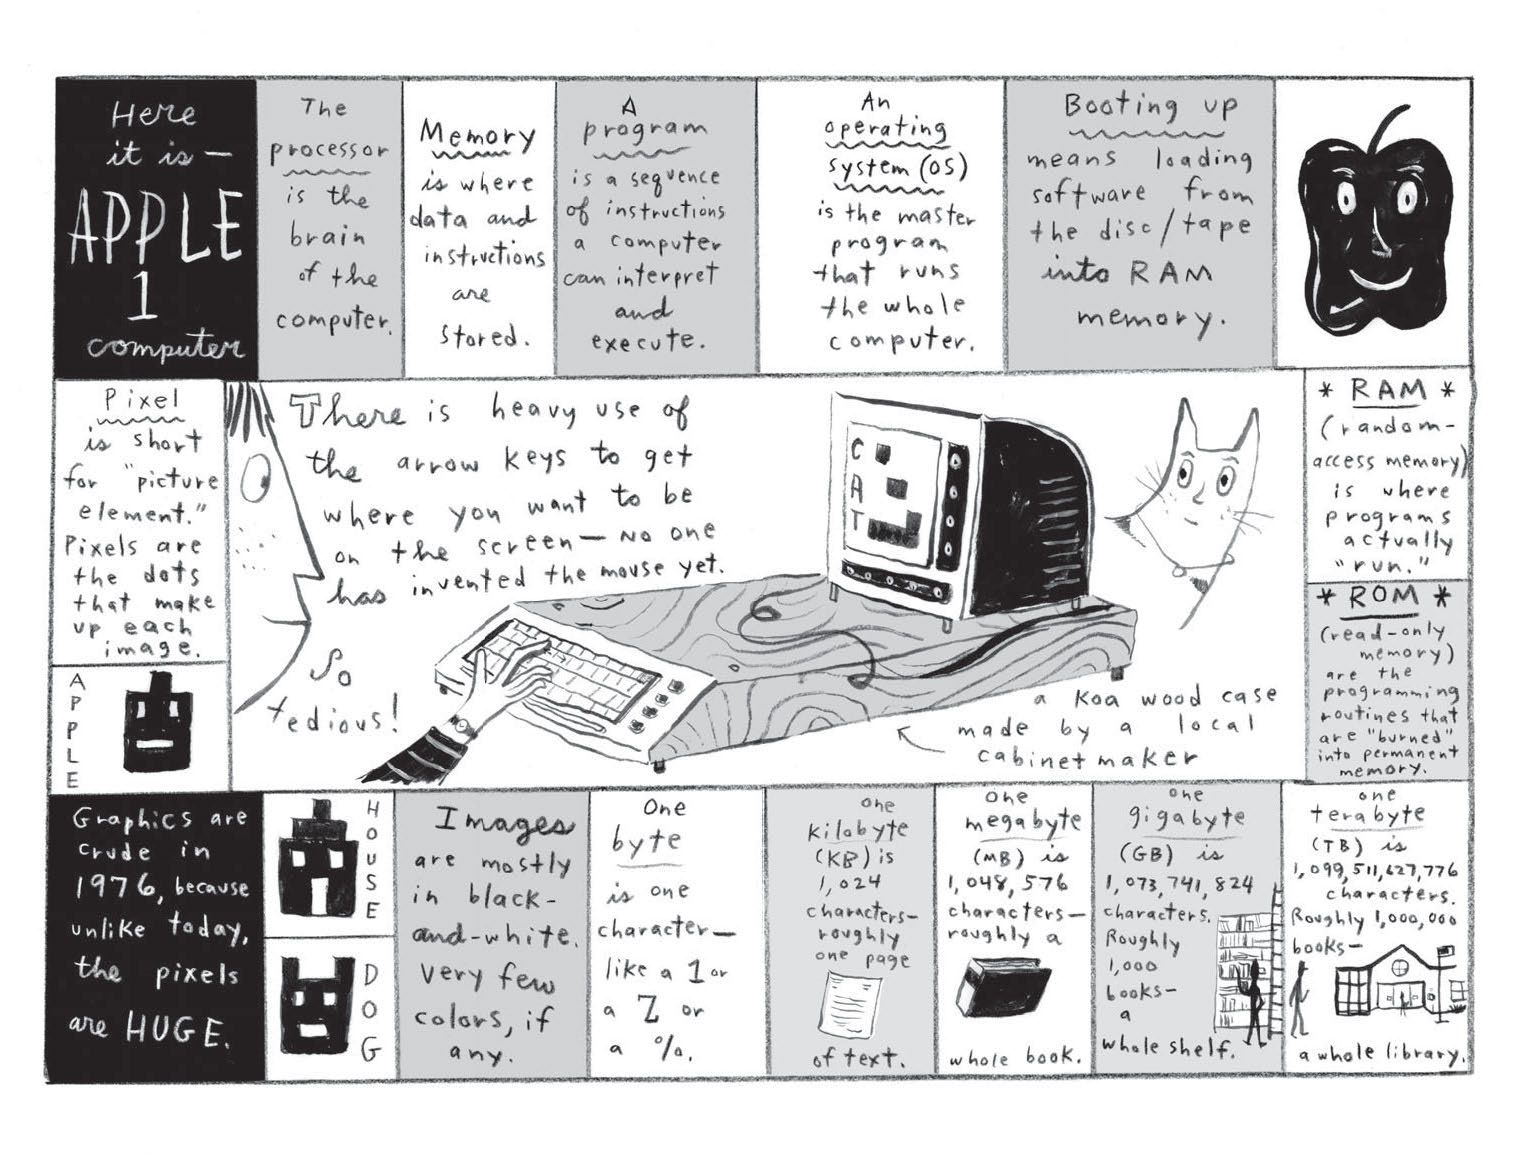 Here
it is —
APPLE
1
computer
The
processor
is the
brain
of the
computer.
Memory
is where
data and
instructions
are
stored.
A
program
is a sequence
of instructions
a computer
can interpret
and
execute.
An
operating
system (OS)
is the master
program
that runs
the whole
computer.
Booting up
means loading
software from
the disc/tape
into RAM
memory.
Pixel
is short
for "picture
element."
Pixels are
the dots
that make
up each
image.
APPLE
There is heavy use of
the arrow keys to get
where you want to be
on the screen — no one
has invented the mouse yet.
So
tedious!
CAT
a koa wood case
made by a local
cabinet maker
* RAM *
(random-
access memory)
is where
programs
actually
"run."
* ROM *
(read-only
memory)
are the
programming
routines that
are "burned"
into permanent
memory.
Graphics are
crude in
1976, because
unlike today,
the pixels
are HUGE.
HOUSE
DOG
Images
are mostly
in black-
and-white.
Very few
colors, if
any.
One
byte
is one
character—
like a 1 or
a Z or
a %.
One
kilobyte
(KB) is
1,024
characters—
roughly
one page
of text.
One
megabyte
(MB) is
1,048,576
characters—
roughly a
whole book.
One
gigabyte
(GB) is
1,073,741,824
characters.
Roughly
1,000
books—
a
whole shelf.
One
terabyte
(TB) is
1,099,511,627,776
characters.
Roughly 1,000,000
books—
a whole library.